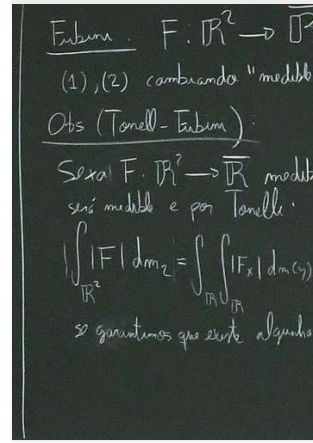 Fubini. F: ℝ² → ℝ̅
(1), (2) cambiando "medible
Obs (Tonell-Fubini):
Sexa F: ℝ² → ℝ̅ medib
será medible e por Tonelli.
∫_{ℝ²} |F| dm₂ = ∫_ℝ ∫_ℝ |Fₓ| dm(y)
se garantimos que existe algunha